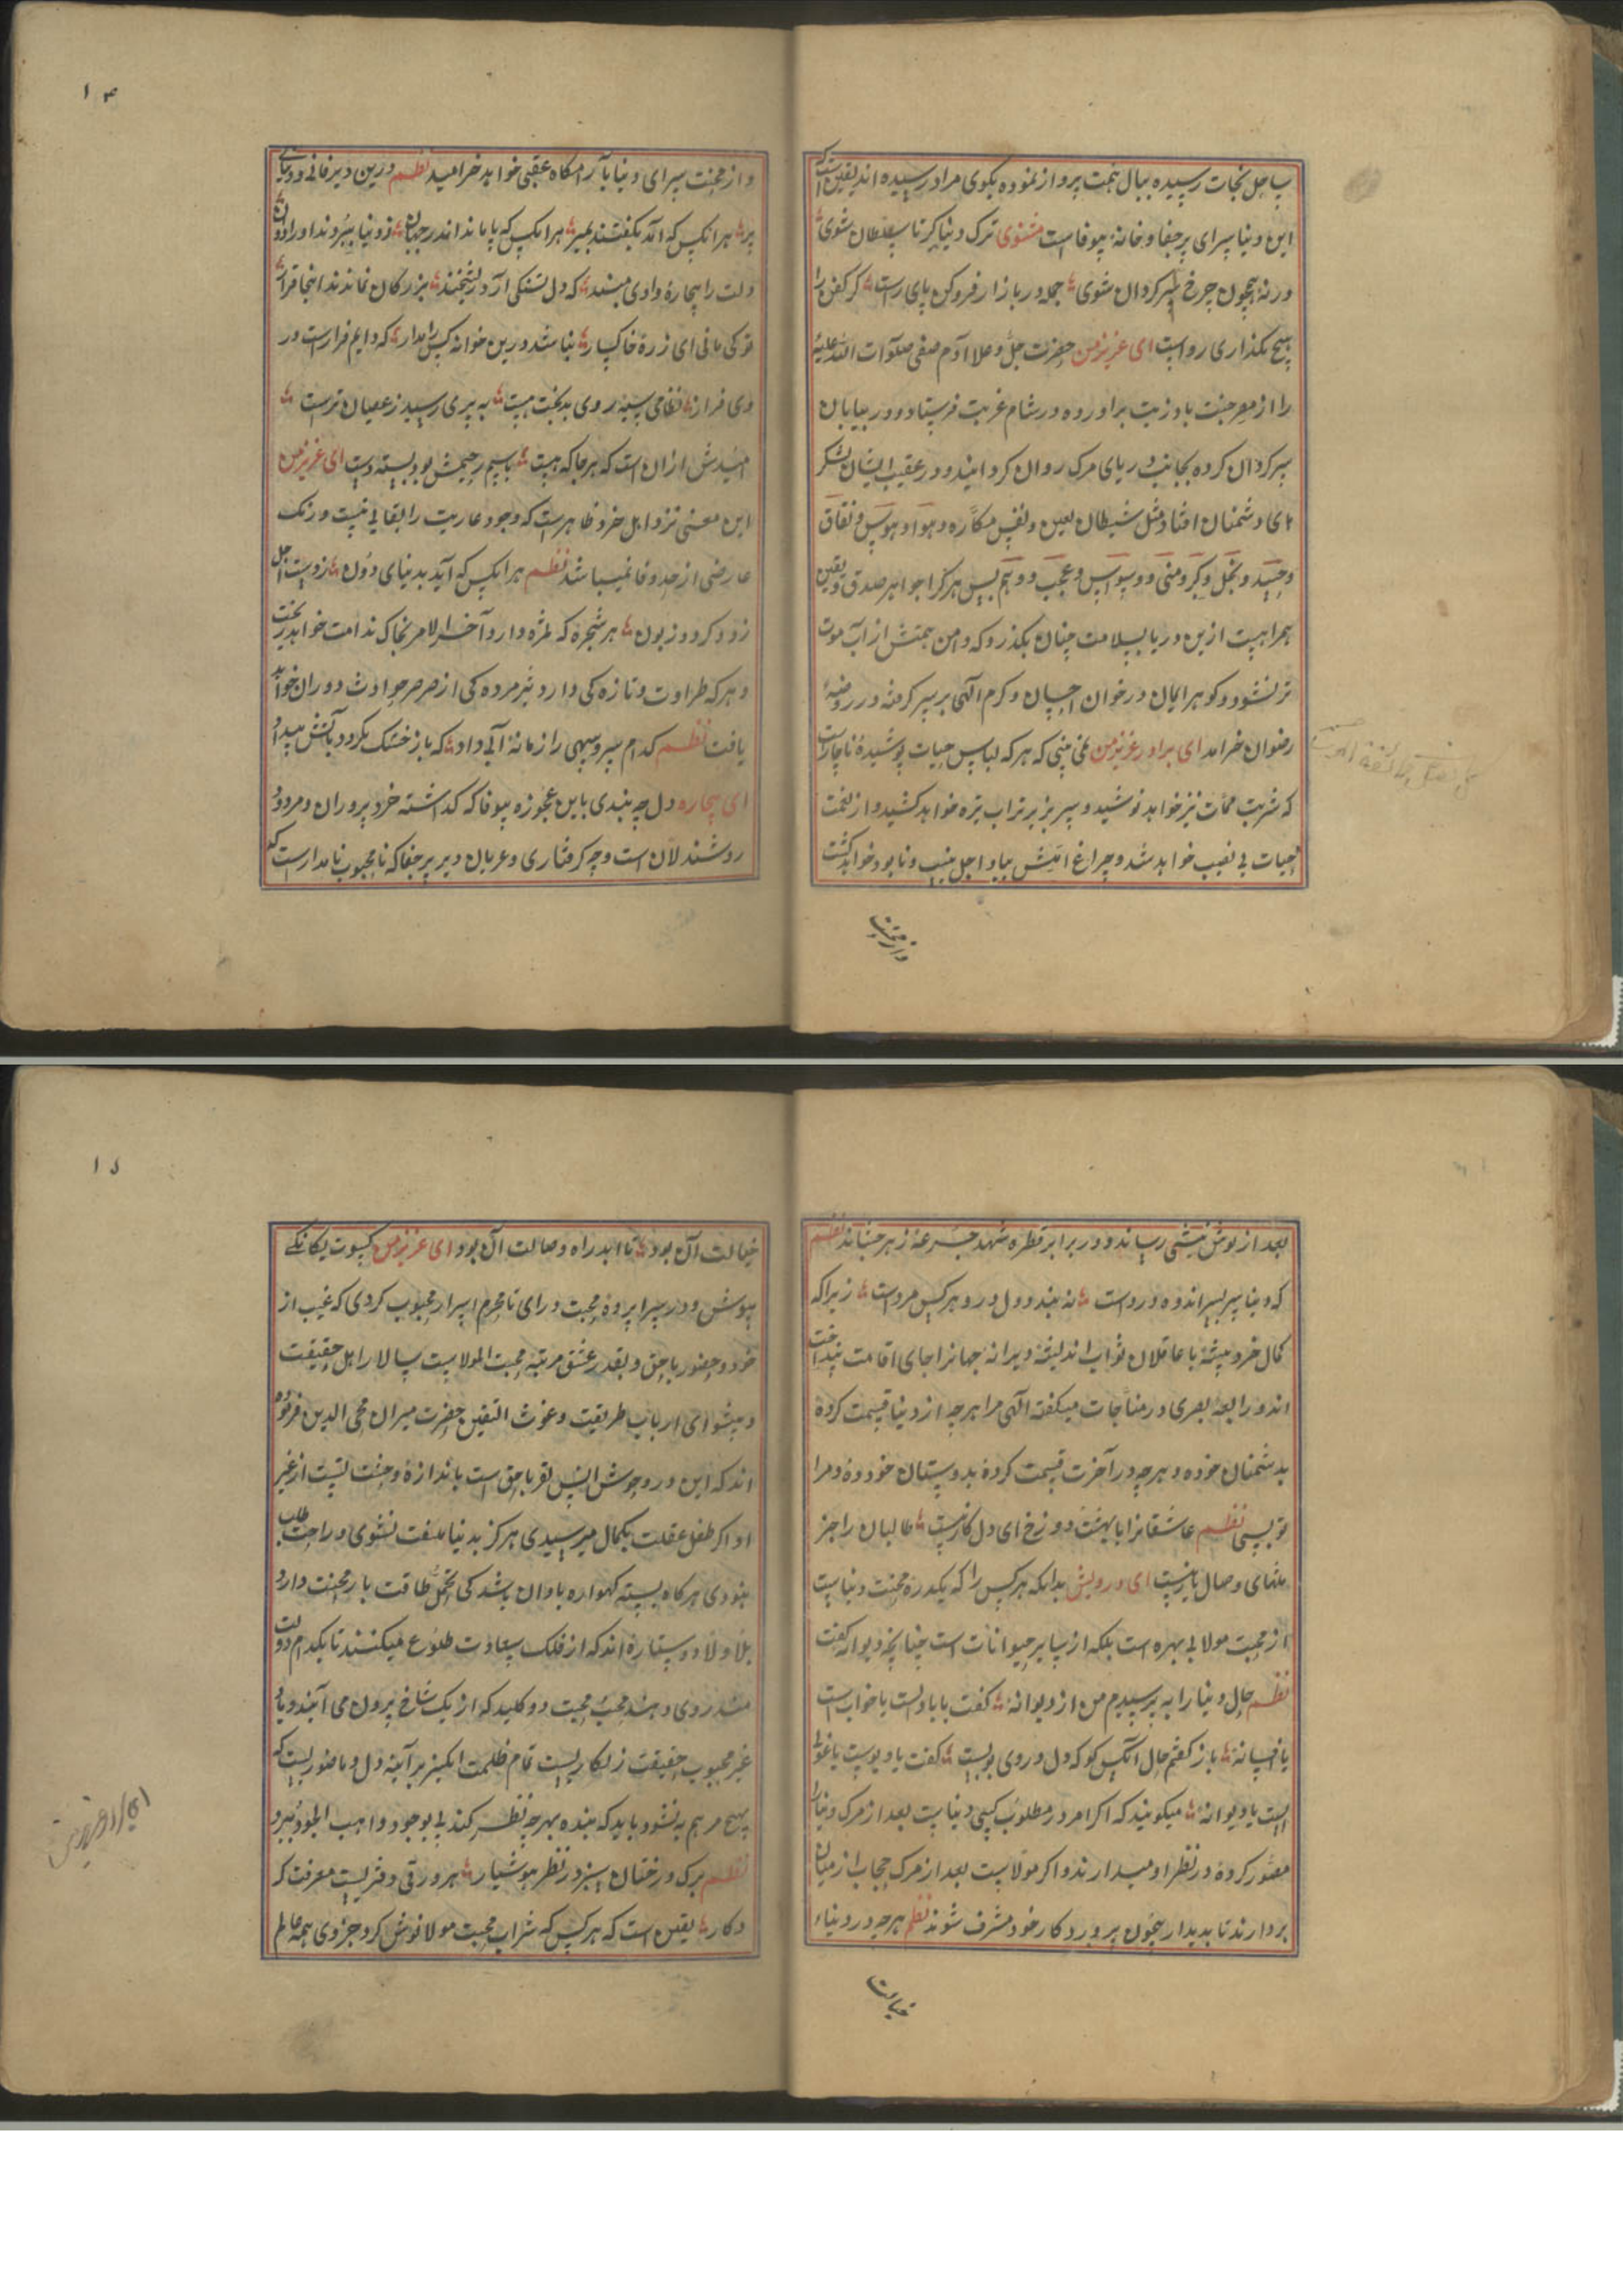 بساحل نجات رسیده ببال همت پرواز نموده بکوی مراد رسیده اند یقین است که
این دنیا سرای پر جفا و خانهٔ بیوفا است مثنوی ترک دنیا گیر تا سلطان شوی
ورنه همچون چرخ سرگردان شوی جمله در باز از فروکن پای راست گر کفن را
هیچ بگذاری رواست ای عزیز من حضرت جل و علا آدم صفی صلوات الله علیه
را از مصر جنت باوذیت براورده در شام غربت فرستاد و در بیابان
سرکردان کرده بجانب دریای مرک روان کردانید و در عقب ایشان لشکر
های دشمنان افتاد مثل شیطان لعین و نفس مکاره و هوا و هوس و نفاق
و حسد و بخل و کبر و منی و وسوس و عجب و وهم پس هر کرا جواهر صدق و یقین
همراهست ازین دریا بسلامت چنان بکذرد که دامن همتش از آب موت
تر نشود و کوهر ایمان در خوان احسان و کرم الهی بر سر کرفته در روضهٔ
رضوان خرامد ای برادر عزیز من نمی بینی که هر که لباس حیات پوشیده ناچار است
که شربت ممات نیز خواهد نوشید و سر بزیر تراب تیره خواهد کشید و از نعمت
حیات بی نصیب خواهد شد و چراغ املش بباد اجل منیب و نابود خواهد کشت
واز محنت
۱۴
و از محنت سرای دنیا بآرامکاه عقبی خواهد خرامید نظم درین دیر فانی و دنیای
هر انکس که آمد بکفتند بمیر هر انکس که پا ماند اندر جهان ز دنیا ببردند او را دوان
دلت را بیچاره وادی مبند که دل تنکی آرد ز بخشند بزرکان نماندند اینجا قرار
تو کی مانی ای ذرهٔ خاکسار نباشد درین خوانه کس را مدار که دایم فرار است در
وی قرار نظامی سیه روی بدبخت هست به پیری رسید ز عصیان نرست
امیدش ازان است که هرجا که هست باسم رحیمش بود بسته دست ای عزیز من
این معنی نزد اهل خرد ظاهرست که وجود عاریت را بقایی نیست و رنک
عارضی از حد وفا نمیباشد نظم هر انکس که آید بدنیای دون ز دست اجل
زود کردد زبون هر شجره که ثمره دارد آخر الامر بخاک ندامت خواهد ریخت
و هر که طراوت و تازه کی دارد پژمرده کی از صرصر حوادث دوران خواهد
یافت نظم کدام سرو سهی را زمانه آبی داد که باز خشک نکرد و بآتش بیداد
ای بیچاره دل چه بندی باین عجوزه بیوفا که کذاشته خرد پروران و مردود
روشندلان است و چه کرفتاری و عریان دیر پر جفا که نامحبوب نامدار است که
بعد از نوش نیشی رساند و در برابر قطره شهد جرعهٔ زهر چشاند نظم
که دنیا سر بسر اندوه و درد است نه بندد دل درو هر کس مردست زیراکه
کمال خرد پیشهٔ با عاقلان ثواب اندیشهٔ ویرانه جهانرا جای اقامت نپنداخت
اند و رابعهٔ بصری در مناجات میکفته الهی مرا هرچه از دنیا قسمت کردهٔ
بدشمنان خود ده و هرچه در آخرت قسمت کردهٔ بدوستان خود ده و مرا
تو بسی نظم عاشقانرا با بهشت و دوزخ ای دل کار نیست طالبان را جز
تمنای وصال یار نیست ای درویش بدانکه هرکس را که یکذره محبت دنیاست
از محبت مولا بی بهره است بلکه از سایر حیوانات است چنانچه دیوانه کفت
نظم حال دنیا را به پرسیدم من از دیوانهٔ کفت یا بادست یا خوابست
یا افسانهٔ باز کفتم حال آنکس کو که دل در وی ببست کفت یا دیوست یا غول
است یا دیوانهٔ میکویند که اکر امروز مطلوب کسی دنیاست بعد از مرک دنیا را
مصور کرده در نظر او میدارند و اکر مولاست بعد از مرک حجاب از میان
بردارند تا بدیدار بیچون پروردکار خود مشرف شوند نظم هرچه در دنیا
خیالت
۱۵
خیالت آن بود تا ابد راه وصالت آن بود ای عزیز من کسوت یکانکی
بپوش و در سراپرده محبت درای تا محرم اسرار محبوب کردی که غیب از
خود و حضور با حق و بقدر عشق مرتبه محبت المولاست سالار اهل حقیقت
و پیشوای ارباب طریقت و غوث الثقلین حضرت میران محی الدین فرموده
اند که این درد جوشش انس تو با حق است باندازهٔ وحشت تست از غیر
او اکر طفل عقلت بکمال میرسیدی هرکز بدنیا ملتفت نشوی و راحت طلب
نبودی هرکاه بسته کهواره بادان باشد کی تحمل طاقت بار محنت دارد
بلا و ولا دو ستاره اند که از فلک سعادت طلوع میکنند تا بکدام دولت
مند روی دهند محبت محنت دو کلید که از یک شاخ برون می آیند و یاد
غیر محبوب حقیقت زنکاریست تمام ظلمت انکیز بر آینه دل و ناصوریست که
بهیچ مرهم به نشود باید که بنده بهرچه نظر کند بی بوجود واهب الوجود نبرد
نظم برک درختان سبز در نظر هوشیار هر ورقی دفتریست معرفت کر
دکار یقین است که هرکس که شراب محبت مولا نوش کرد جزوی همه عالم